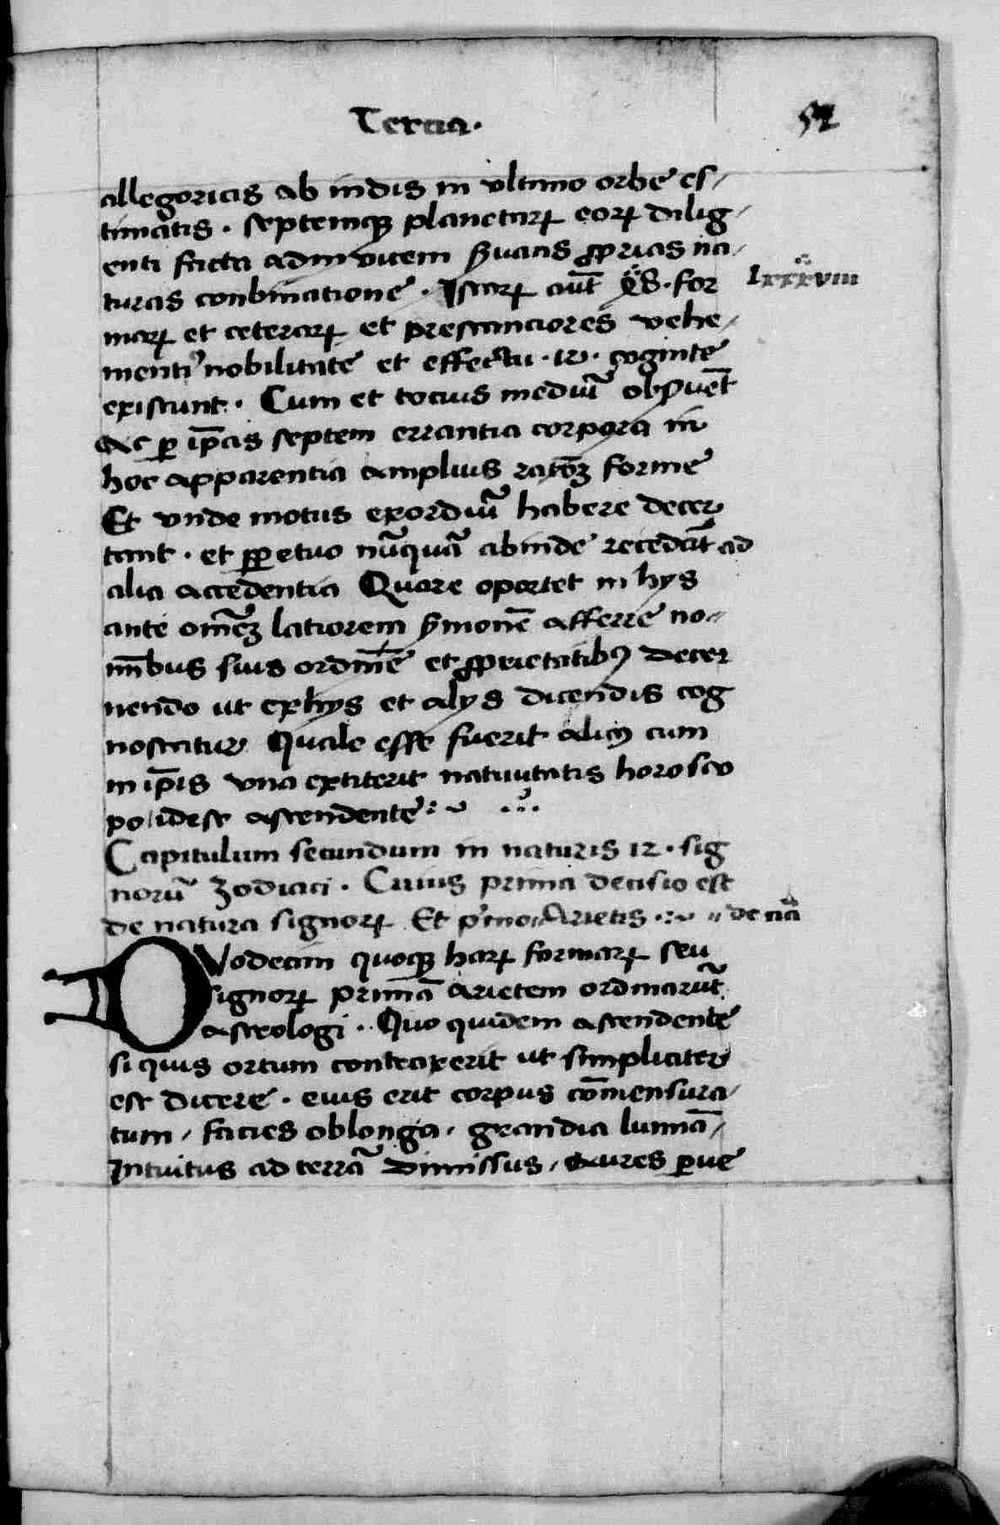 Tercia. 52
allegoricis ab indis in vltimo orbe es-
timatis . septemqꝫ planetarꝝ eorꝝ dilig-
enti facta adinuicem ẜuatis ꝓprias na-
turas conbinatione . Istarꝝ aut̄ . for
lxxxviii
marꝝ et ceterarꝝ et prestanciores vehe-
menti nobilitate et effectu . 12 . cognite
existunt . Cum et tocius mediū
Ac ꝑ ip̄as septem errantia corpora in
hoc apparentia amplius forme
Et vnde motus exordiū habere decer
tant . et ꝑpetuo nūquā abinde recedāt ad
alia accedentia Quare oportet in hys
ante latiorem ẜmonē afferre no-
mībus suis ordine et ꝓprietatibꝰ decer
nendo ut ex hys et alys dicendis cog
noscatur Quale esse fuerit alicꝰ cum
in ip̄is vna extiterit natiuitatis horosco
po idest ascendente
Capitulum secundum in naturis 12 . sig
norū zodiaci . Cuius prima decisio est
de natura signorꝝ Et pͥmo Arietis . de nā
DVodecim quoqꝫ harꝝ formarꝝ seu
signorꝝ primā arietem ordinarūt
astrologi . Quo quidem ascendente
si quis ortum contraxerit ut simpliciter
est dicere . eius erit corpus cōmensura-
tum , facies oblonga . grandia lumīa ,
Intuitus ad terrā dimissus , aures ꝑue